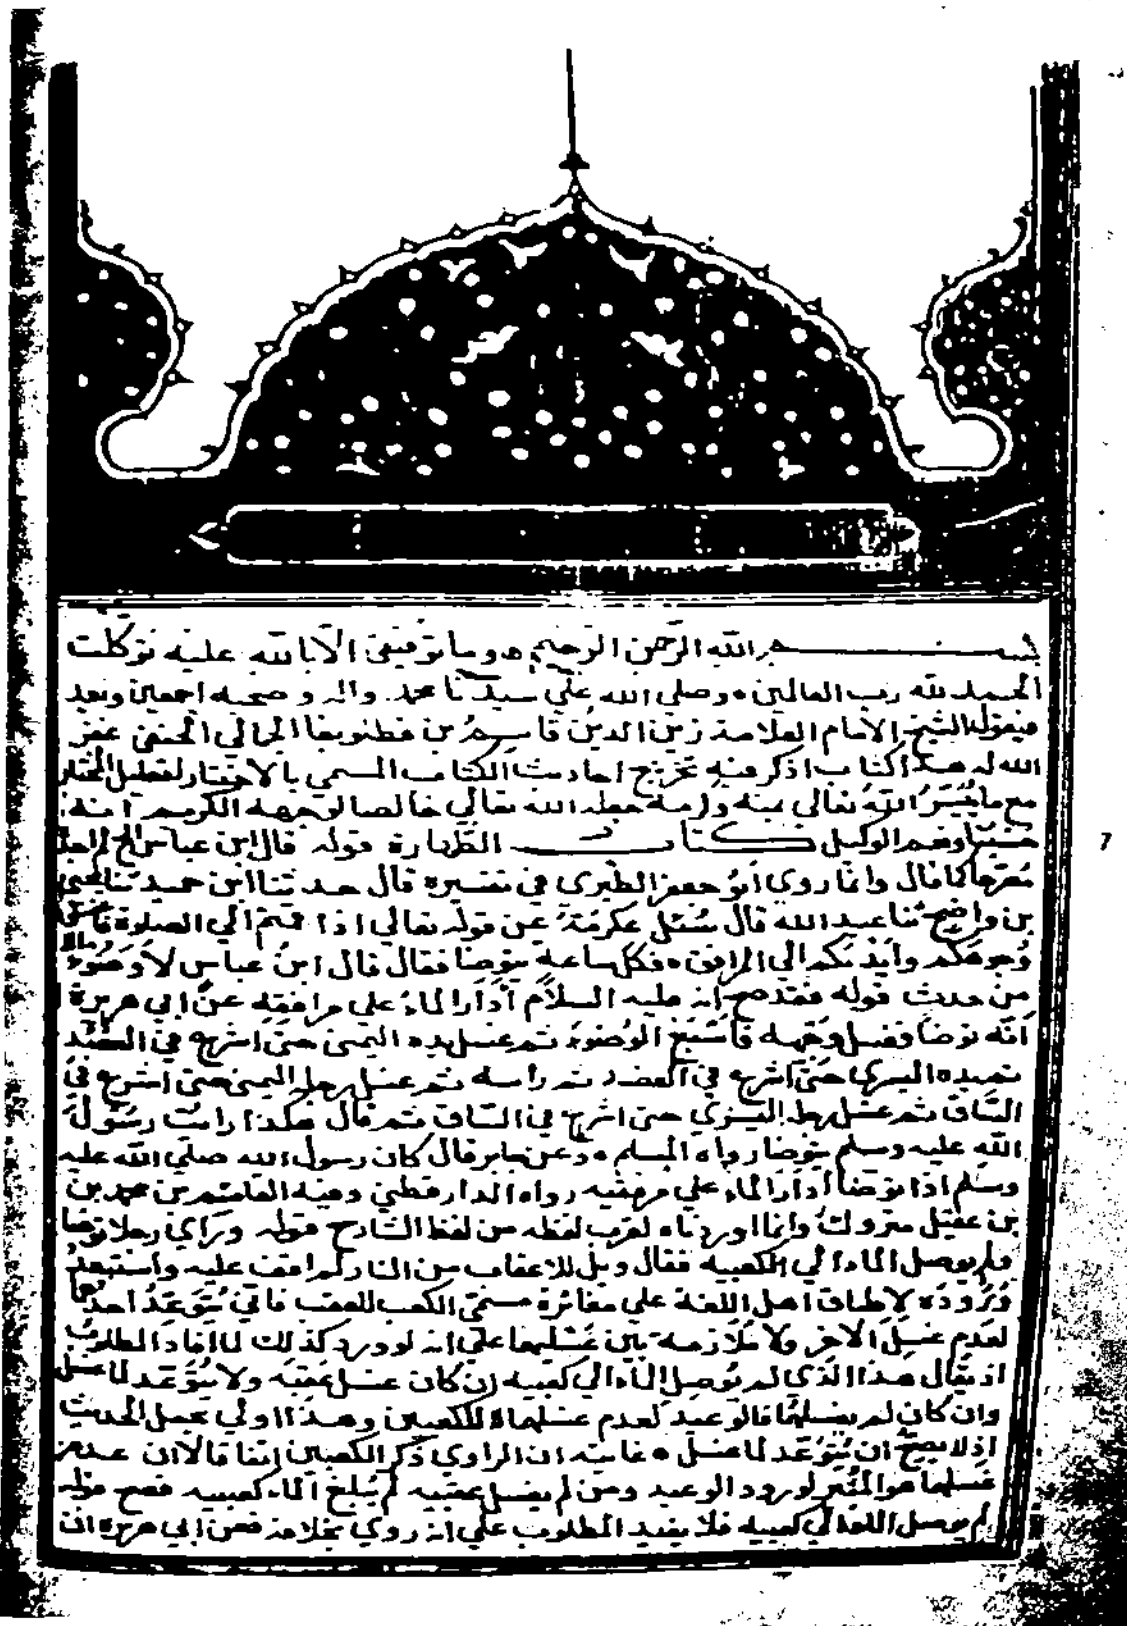 بسم الله الرحمن الرحيم ه وما توفيقي الا بالله عليه توكلت
الحمد لله رب العالمين ه وصلى الله علي سيدنا محمد واله وصحبه اجمعين وبعد
فيقول الشيخ الامام العلامة زين الدين قاسم بن قطلوبغا الجمالي الحنفي غفر
الله له هذا كتاب اذكر فيه تخريج احاديث الكتاب المسمي بالاختيار لتعليل المختار
مع ما يُيَسِّرُ اللهُ تعالي بمنه وكرمه جعله الله تعالي خالصا لوجهه الكريم انه
حسبنا ونعم الوكيل كتاب الطهارة قوله قال ابن عباس الخ لم اجد
مُخرجا كما قال وانما روي أبو جعفر الطبري في تفسيره قال حدثنا ابن حميد ثنا يحيي
بن واضح ثنا عبيد الله قال سُئل عكرمة عن قوله تعالي اذا قمتم الي الصلوة فاغسلوا
وُجوهَكم وأيديَكم الي المرافق ه فكل ساعة يتوضا فقال قال ابن عباس لا وضُوءَ الا
من حدث قوله فقد صح انه عليه السلام أدارَ الماءَ علي مرافقه عن ابي هريرة
أَنَّه توضا فغسل وَجهه فأَسْبَغَ الوُضوء ثم غسل يده اليمني حتي اشرع في العضد
ثم يده اليسري حتي اشرع في العضد ثم راسه ثم غسل رجله اليمني حتي اشرع في
الساق ثم غسل رجله اليسري حتي اشرع في الساق ثم قال هكذا رايت رسُولَ
الله عليه وسلم يتوضا رواه المسلم ه وعن جابر قال كان رسول الله صلي الله عليه
وسلم اذا توضا أدارَ الماء علي مرفقيه رواه الدارقطني وفيه القاسم بن محمد بن
بن عقيل متروك وانما اوردناه لقرب لفظه من لفظ الشارح قوله ورَاي رجلا توضا
ولم يوصل الماء الي الكعبيه فقال ويل للاعقاب من النار لم اقف عليه وأستبعدُ
وُرُودَه لاطباق اهل اللغة علي مغائرة مسمَّي الكعب للعقب فاني يُتَوَعَّدُ احدهما
لعدم غسلِ الاخر ولا مُلازمة بين غَسْليهما علي انه لو ورد كذلك لما افادَ المطلوبَ
اذ يُقال هذا الذي لم يُوصلِ الماءَ الي كعبيه إن كان غسل عقبَه ولا يُتَوَعَّد لما غسل
وان كان لم يغسلهما فالوعيد لعدم غسلهما لا للكعبين وهذا اولي يحمل الحديث
اذ لا يصحُّ ان يُتَوعَّد لما غسل ه غايته ان الراوي ذكر الكعبين اتفاقا لا ان عدم
غسلهما هو المُثير لورود الوعيد ومن لم يغسل عقبيه لم يُبلغ الماء كعبيه فصح قوله
لم يوصل الماء الي كعبيه فلا يفيد المطلوب علي انه روي بخلافه فعن ابي هريرة ان